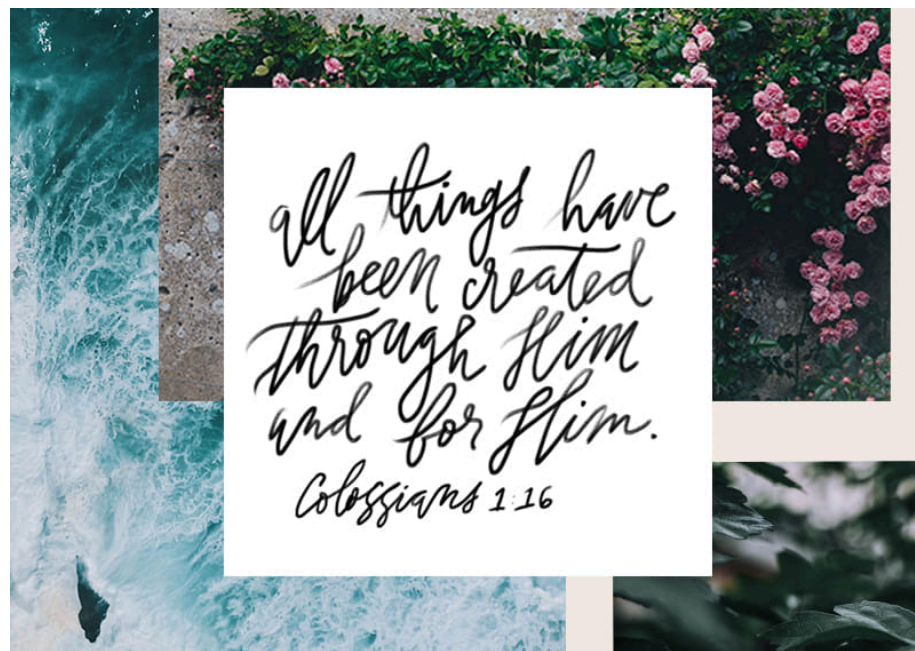 all things have
been created
through Him
and for Him.
Colossians 1:16